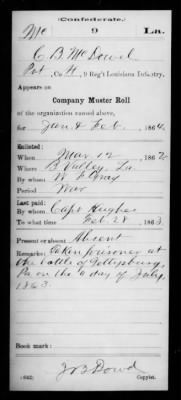 Confederate.
Mc 9 La.
C B McDowel
Pvt, Co. H, 9 Reg't Louisiana Infantry.
Appears on
Company Muster Roll
of the organization named above,
for Jan & Feb, 1864.
Enlisted:
When Mar 12, 1862
Where B. Valley, La
By whom W F Gray
Period War
Last paid:
By whom Capt Hughes
To what time Feb 28, 1863.
Present or absent Absent
Remarks: Taken prisoner at
the battle of Gettysburg,
Pa on the day of July,
1863.
Book mark:
Dowd
(642) Copyist.